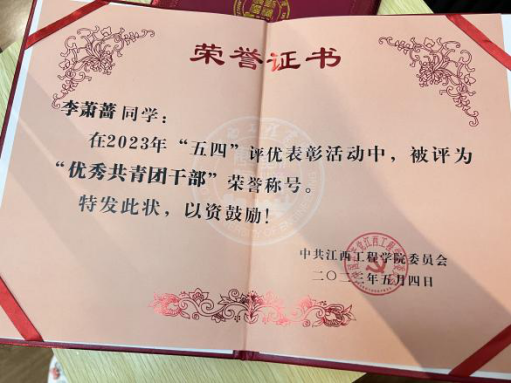 荣誉证书
李萧蔷同学：
在2023年“五四”评优表彰活动中，被评为
“优秀共青团干部”荣誉称号。
特发此状，以资鼓励！
中共江西工程学院委员会
二〇二三年五月四日